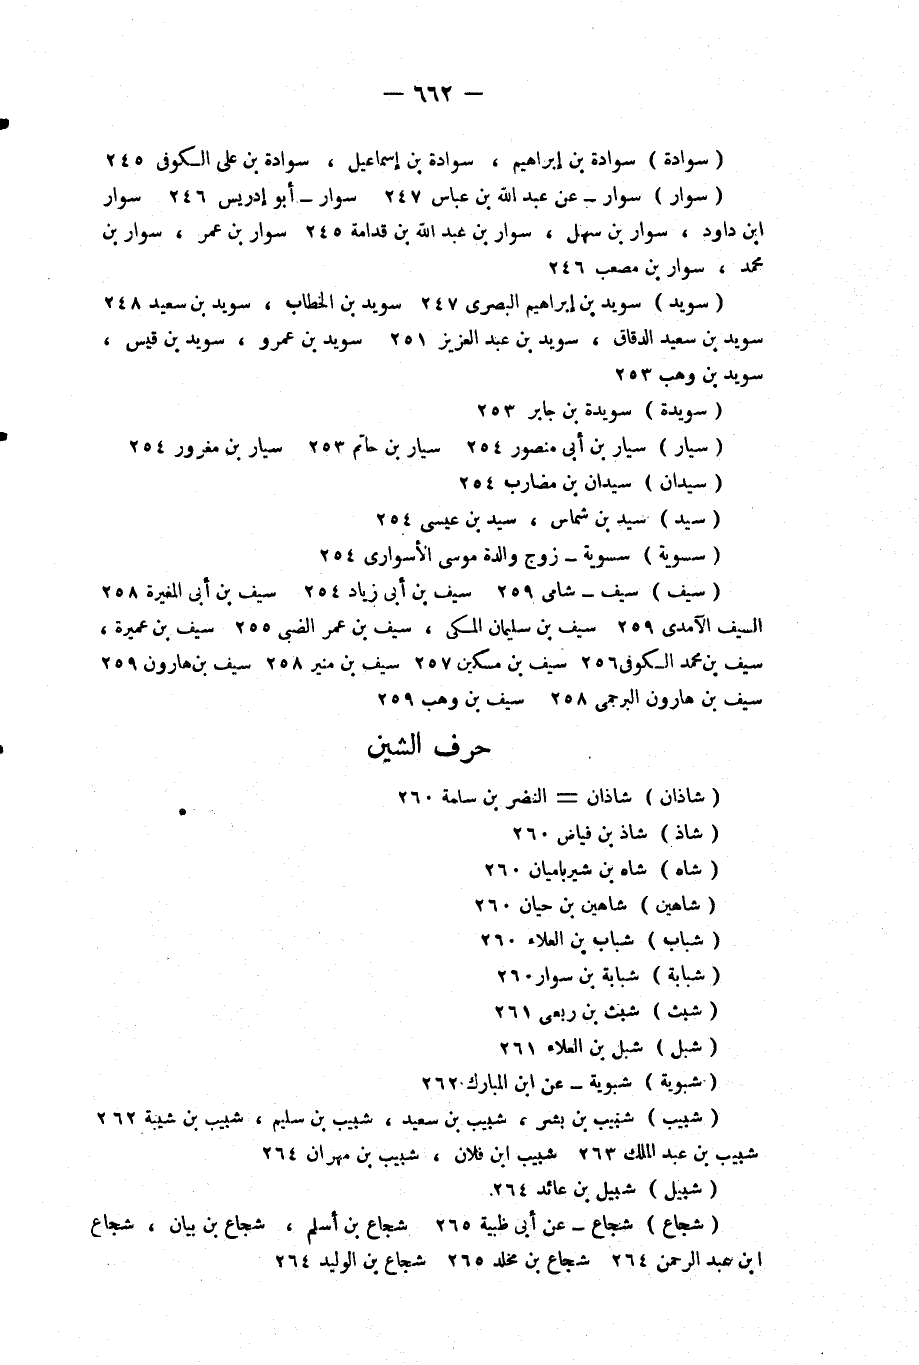 — ٦٦٢ —
( سوادة ) سوادة بن إبراهيم ، سوادة بن إسماعيل ، سوادة بن على الكوفى ٢٤٥
( سوار ) سوار – عن عبد الله بن عباس ٢٤٧ سوار – أبو إدريس ٢٤٦ سوار
ابن داود ، سوار بن سهل ، سوار بن عبد الله بن قدامة ٢٤٥ سوار بن عمر ، سوار بن
محمد ، سوار بن مصعب ٢٤٦
( سويد ) سويد بن إبراهيم البصرى ٢٤٧ سويد بن الخطاب ، سويد بن سعيد ٢٤٨
سويد بن سعيد الدقاق ، سويد بن عبد العزيز ٢٥١ سويد بن عمرو ، سويد بن قيس ،
سويد بن وهب ٢٥٣
( سويدة ) سويدة بن جابر ٢٥٣
( سيار ) سيار بن أبى منصور ٢٥٤ سيار بن حاتم ٢٥٣ سيار بن مغرور ٢٥٤
( سيدان ) سيدان بن مضارب ٢٥٤
( سيد ) سيد بن شماس ، سيد بن عيسى ٢٥٤
( سسوية ) سسوية – زوج والدة موسى الأسوارى ٢٥٤
( سيف ) سيف – شامى ٢٥٩ سيف بن أبى زياد ٢٥٤ سيف بن أبى المغيرة ٢٥٨
السيف الآمدى ٢٥٩ سيف بن سليمان المكى ، سيف بن عمر الضبى ٢٥٥ سيف بن عميرة ،
سيف بن محمد الكوفى ٢٥٦ سيف بن مسكين ٢٥٧ سيف بن منير ٢٥٨ سيف بن هارون ٢٥٩
سيف بن هارون البرجمى ٢٥٨ سيف بن وهب ٢٥٩
حرف الشين
( شاذان ) شاذان = النضر بن سلمة ٢٦٠
( شاذ ) شاذ بن فياض ٢٦٠
( شاه ) شاه بن شيرباميان ٢٦٠
( شاهين ) شاهين بن حيان ٢٦٠
( شباب ) شباب بن العلاء ٢٦٠
( شبابة ) شبابة بن سوار ٢٦٠
( شبث ) شبث بن ربعى ٢٦١
( شبل ) شبل بن العلاء ٢٦١
( شبوية ) شبوية – عن ابن المبارك ٢٦٢
( شبيب ) شبيب بن بشر ، شبيب بن سعيد ، شبيب بن سليم ، شبيب بن شيبة ٢٦٢
شبيب بن عبد الملك ٢٦٣ شبيب ابن فلان ، شبيب بن مهران ٢٦٤
( شبيل ) شبيل بن عائد ٢٦٤
( شجاع ) شجاع – عن أبى ظبية ٢٦٥ شجاع بن أسلم ، شجاع بن بيان ، شجاع
ابن عبد الرحمن ٢٦٤ شجاع بن مخلد ٢٦٥ شجاع بن الوليد ٢٦٤